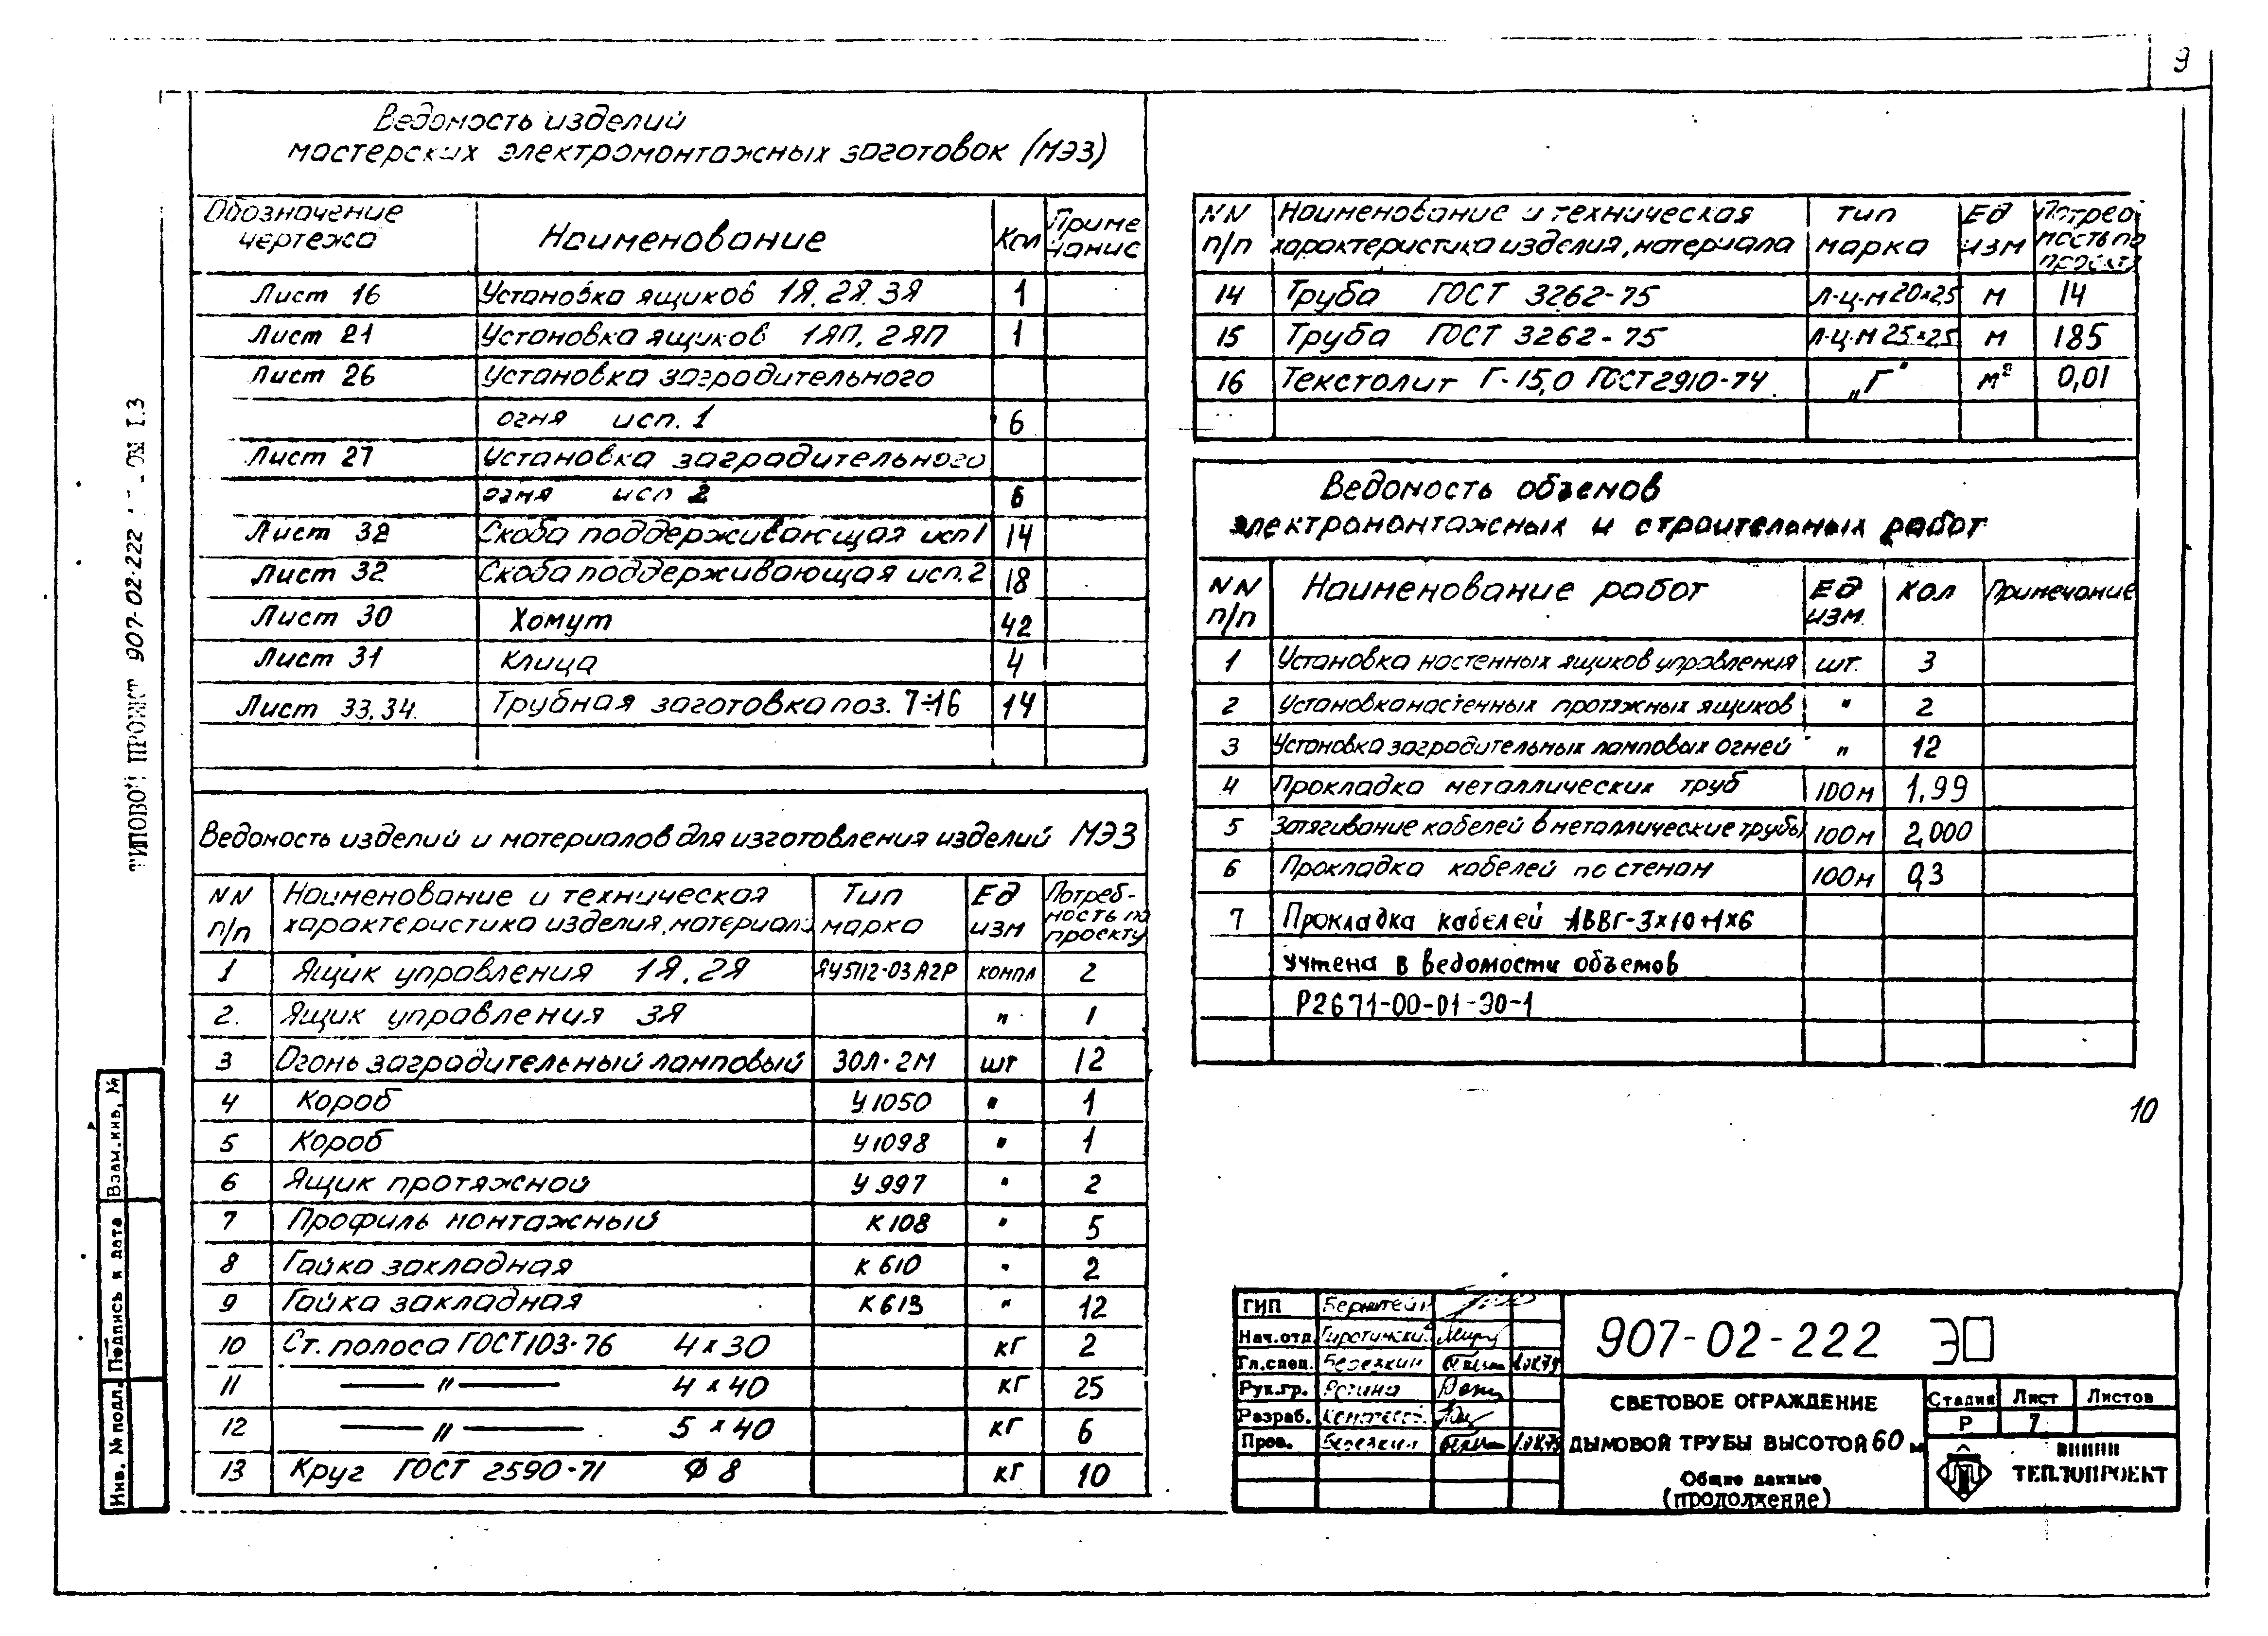 9
Ведомость изделий
мастерских электромонтажных заготовок (МЭЗ)
Обозначение чертежа Наименование Кол Приме чание
Лист 16 Установка ящиков 1Я, 2Я, 3Я 1
Лист 21 Установка ящиков 1ЯП, 2ЯП 1
Лист 26 Установка заградительного
огня исп. 1 6
Лист 27 Установка заградительного
огня исп 2 6
Лист 32 Скоба поддерживающая исп 1 14
Лист 32 Скоба поддерживающая исп. 2 18
Лист 30 Хомут 42
Лист 31 Клица 4
Лист 33, 34. Трубная заготовка поз. 7÷16 14
Ведомость изделий и материалов для изготовления изделий МЭЗ
NN п/п Наименование и техническая характеристика изделия, материала Тип марка Ед изм Потреб- ность по проекту
1 Ящик управления 1Я, 2Я ЯУ5112-03А2Р компл 2
2. Ящик управления 3Я " 1
3 Огонь заградительный ламповый ЗОЛ-2М шт 12
4 Короб У1050 " 1
5 Короб У1098 " 1
6 Ящик протяжной У 997 " 2
7 Профиль монтажный К 108 " 5
8 Гайка закладная К 610 " 2
9 Гайка закладная К 613 " 12
10 Ст. полоса ГОСТ 103-76 4 х 30 кг 2
11 — " — 4 х 40 кг 25
12 — " — 5 х 40 кг 6
13 Круг ГОСТ 2590-71 Ф 8 кг 10
NN п/п Наименование и техническая характеристика изделия, материала Тип марка Ед изм Потреб ность по проекту
14 Труба ГОСТ 3262-75 Л-Ц-М 20х2,5 м 14
15 Труба ГОСТ 3262-75 Л-Ц-М 25х2,5 м 185
16 Текстолит Г-15,0 ГОСТ 2910-74 „Г" м² 0,01
Ведомость объемов
электромонтажных и строительных работ
NN п/п Наименование работ Ед изм. Кол Примечание
1 Установка настенных ящиков управления шт. 3
2 Установка настенных протяжных ящиков " 2
3 Установка заградительных ламповых огней " 12
4 Прокладка металлических труб 100м 1,99
5 Затягивание кабелей в металлические трубы 100м 2,000
6 Прокладка кабелей по стенам 100м 0,3
7 Прокладка кабелей АВВГ-3х10+1х6
учтена в ведомости объемов
Р2671-00-01-ЭО-1
10
ГИП Бернштейн
Нач.отд.
Гл.спец. Березкин
Рук.гр.
Разраб.
Пров. Березкин
907-02-222 ЭО
СВЕТОВОЕ ОГРАЖДЕНИЕ
ДЫМОВОЙ ТРУБЫ ВЫСОТОЙ 60 м
Общие данные
(продолжение)
Стадия Лист Листов
Р 7
ВНИПИ
ТЕПЛОПРОЕКТ
ТИПОВОЙ ПРОЕКТ 907-02-222
Взам.инв. №
Подпись и дата
Инв. № подл.